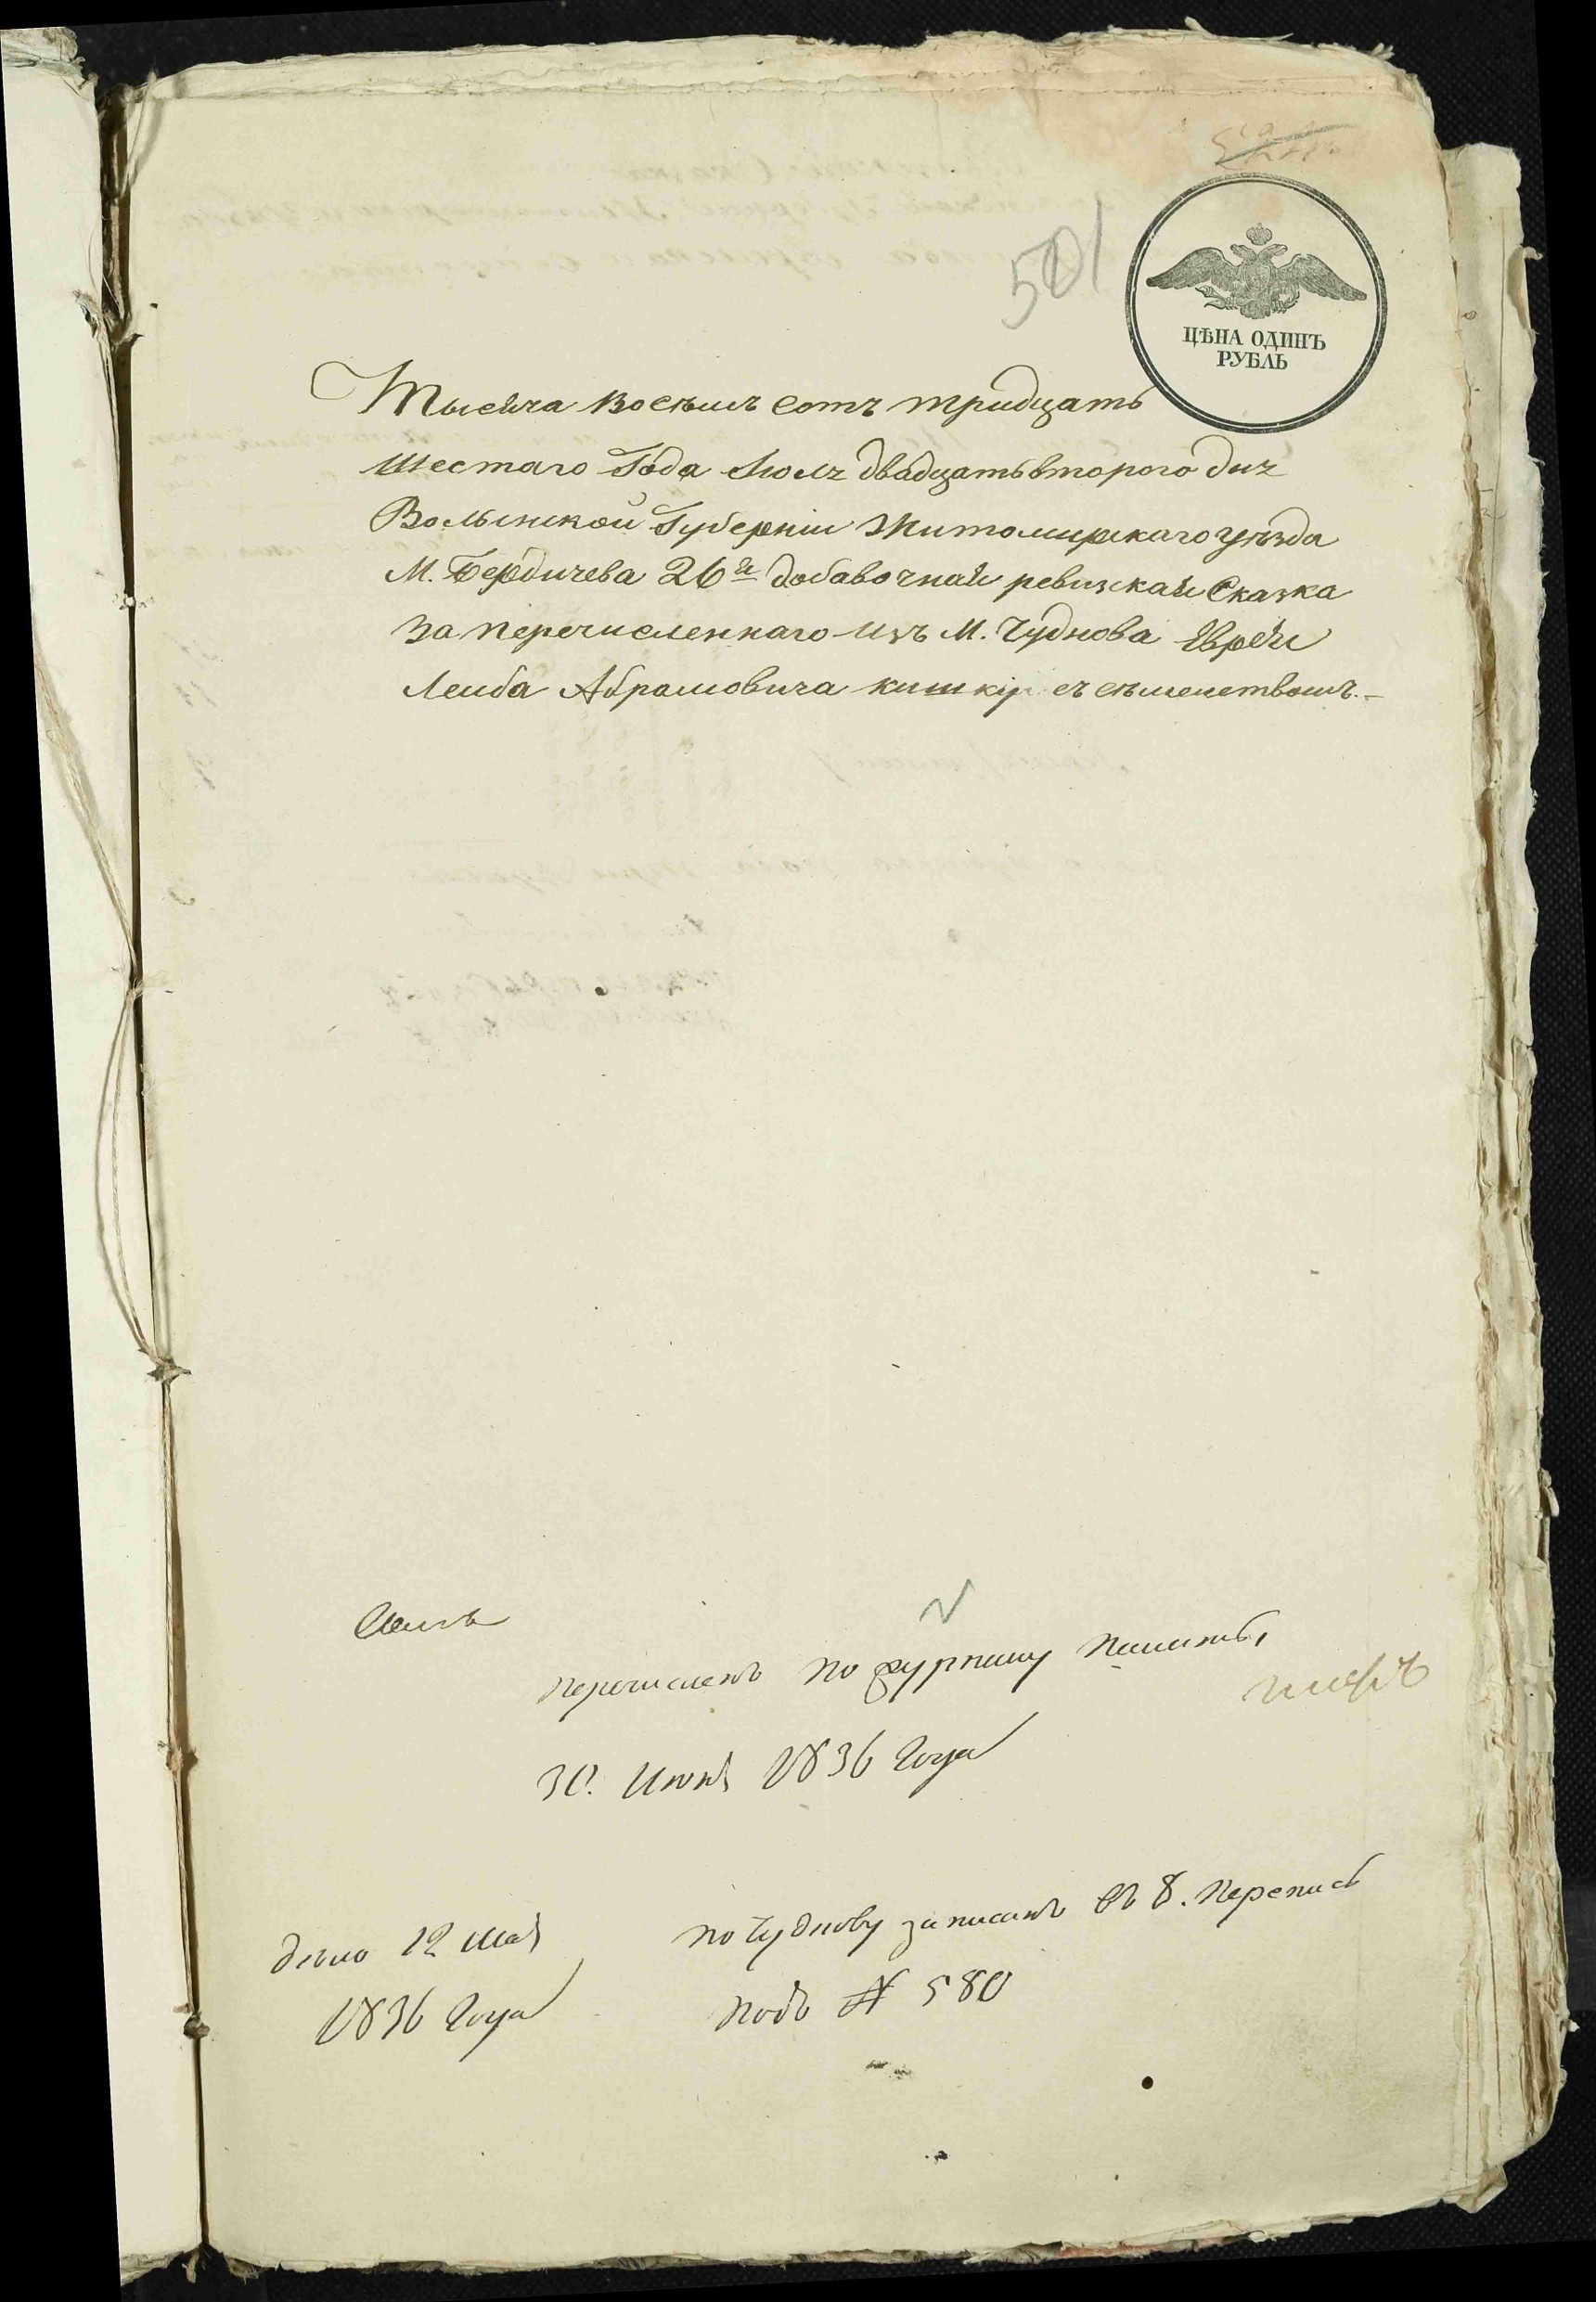 501
ЦѢНА ОДИНЪ
РУБЛЬ
Тысяча восѣмъ сотъ тридцать
шестаго Года Іюля двадцать второго дня
Волынской Губерніи Житомирскаго уѣзда
М. Бердичева 26я добавочная ревизская Сказка
за перечисленнаго изъ М. Чуднова Еврея
Лейба Абрамовича кишкір съ сѣмействомъ.-
перечисленъ по журналу палаты,
30. Июня 1836 Года
дѣло 12 мая
1836 Года
по Чуднову записанъ въ 8. перепись
подъ № 580